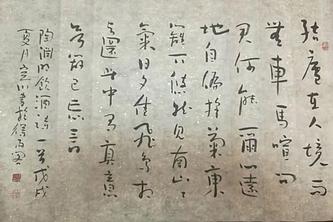 結廬在人境而
無車馬喧問
君何能爾心遠
地自偏採菊東
籬下悠然見南山山
氣日夕佳飛鳥相
與還此中有真意
欲辨已忘言
陶淵明飲酒詩一首戊戌
夏月